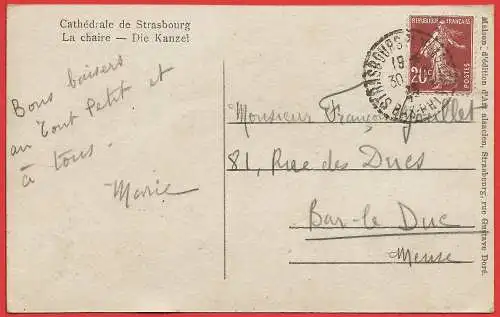 Cathédrale de Strasbourg
La chaire — Die Kanzel
Bons baisers
au Tout Petit et
à tous.
Marie
REPUBLIQUE FRANÇAISE
20c
POSTES
STRASBOURG
19
30
BAS-RHIN
Monsieur François
81, Rue des Ducs
Bar-le Duc
Meuse
Maison d'édition d'Art alsacien, Strasbourg, rue Gustave Doré.